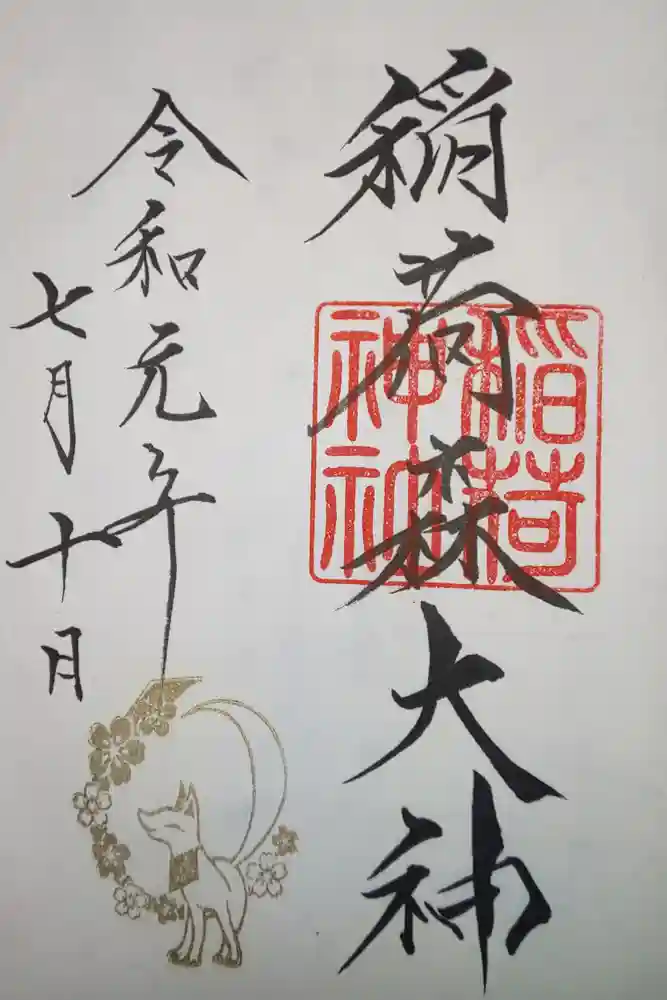 稲荷森大神
稲荷
神神
令和元年
七月十日